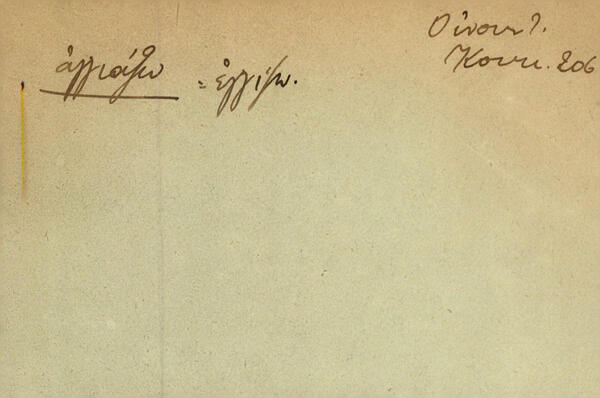 Οἰνουντ.
Κουκ. 206
ἀγγιάζω = ἐγγίζω.